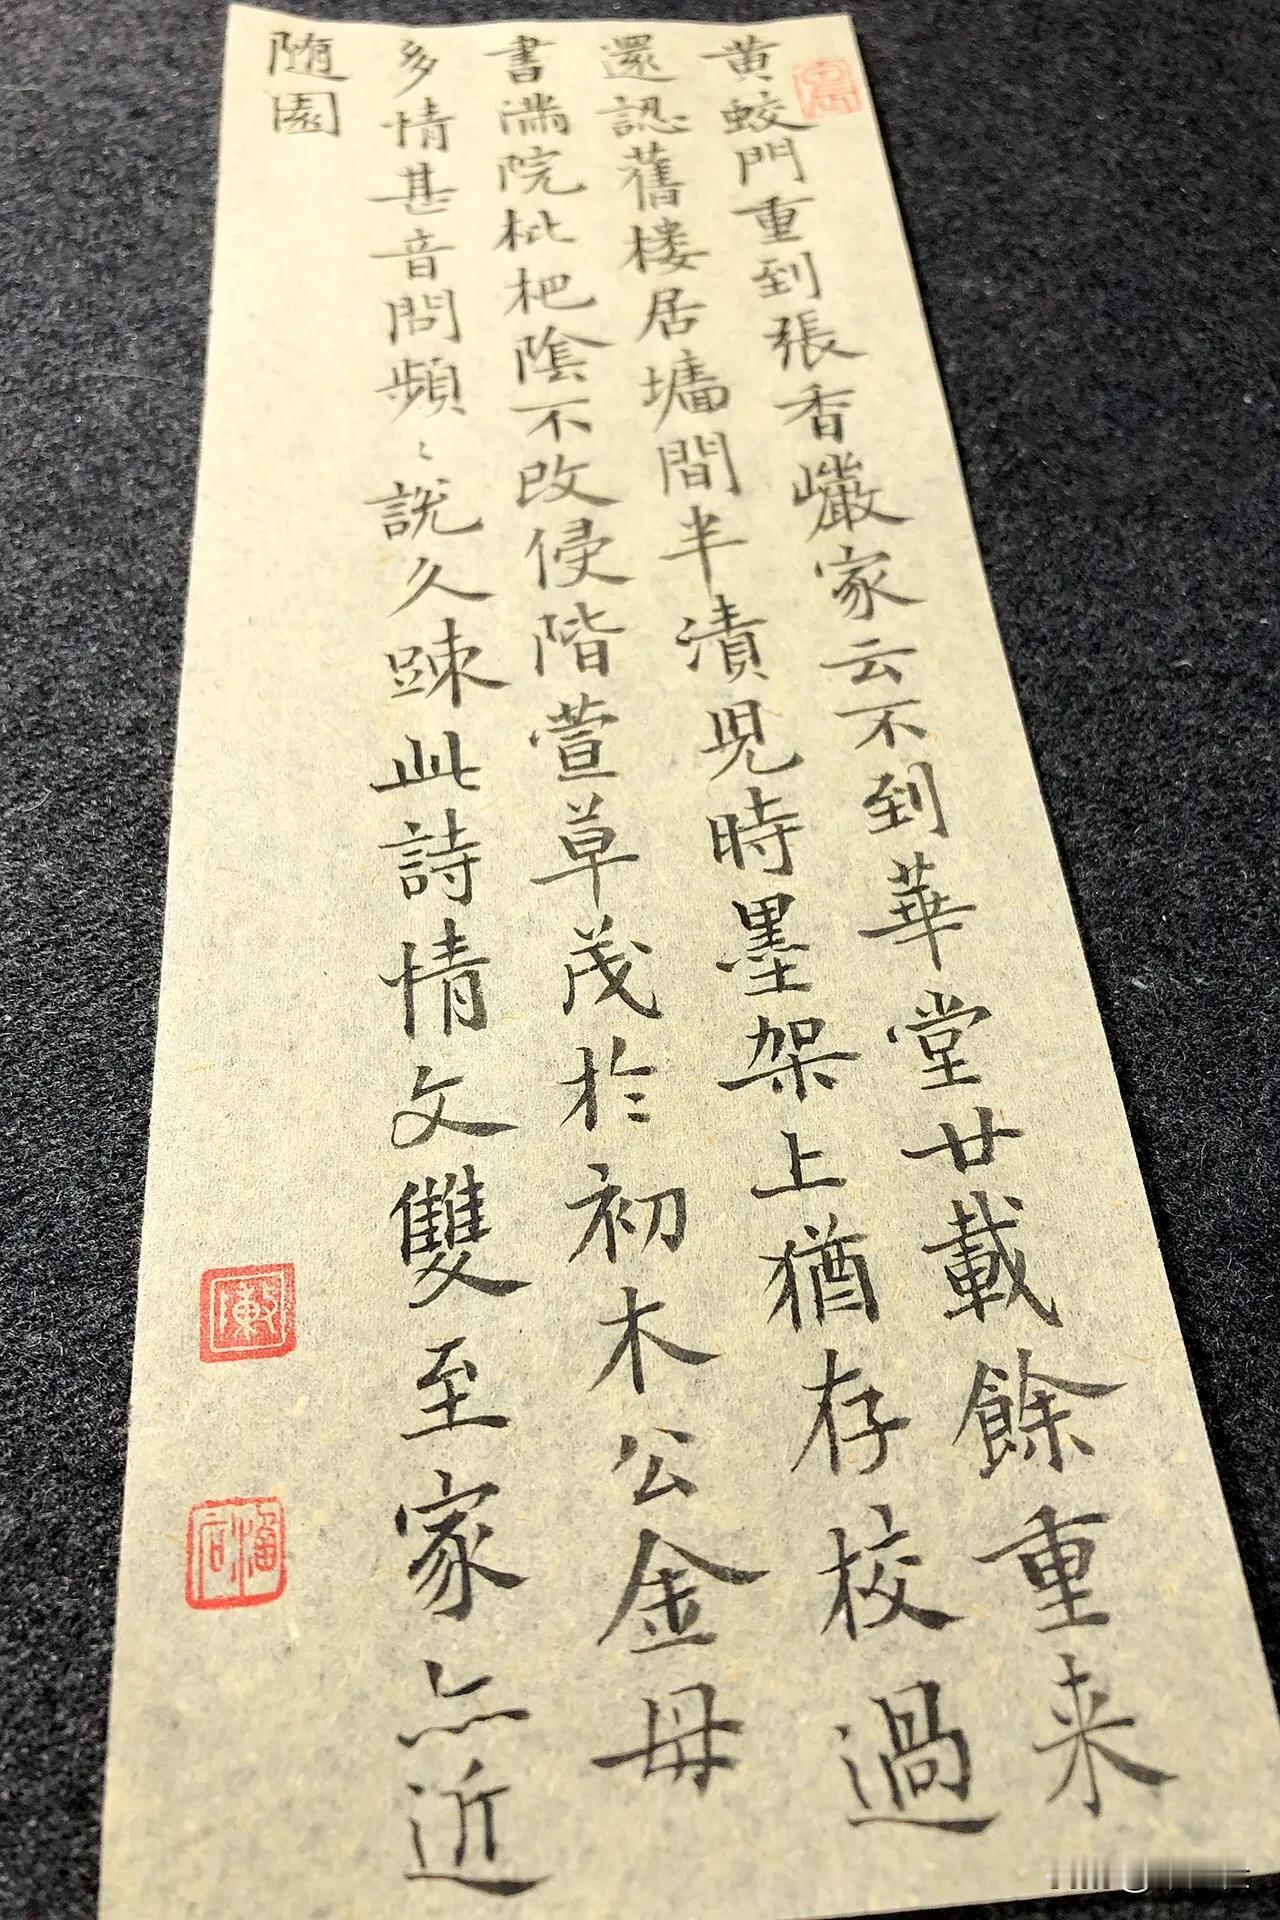 黄蛟門重到張香巘家云不到華堂廿載餘重来
還認舊楼居墻間半漬兒時墨架上猶存校過
書滿院枇杷陰不改侵階萱草茂於初木公金母
多情甚音問頻〻說久踈此詩情文雙至家亦近
随園